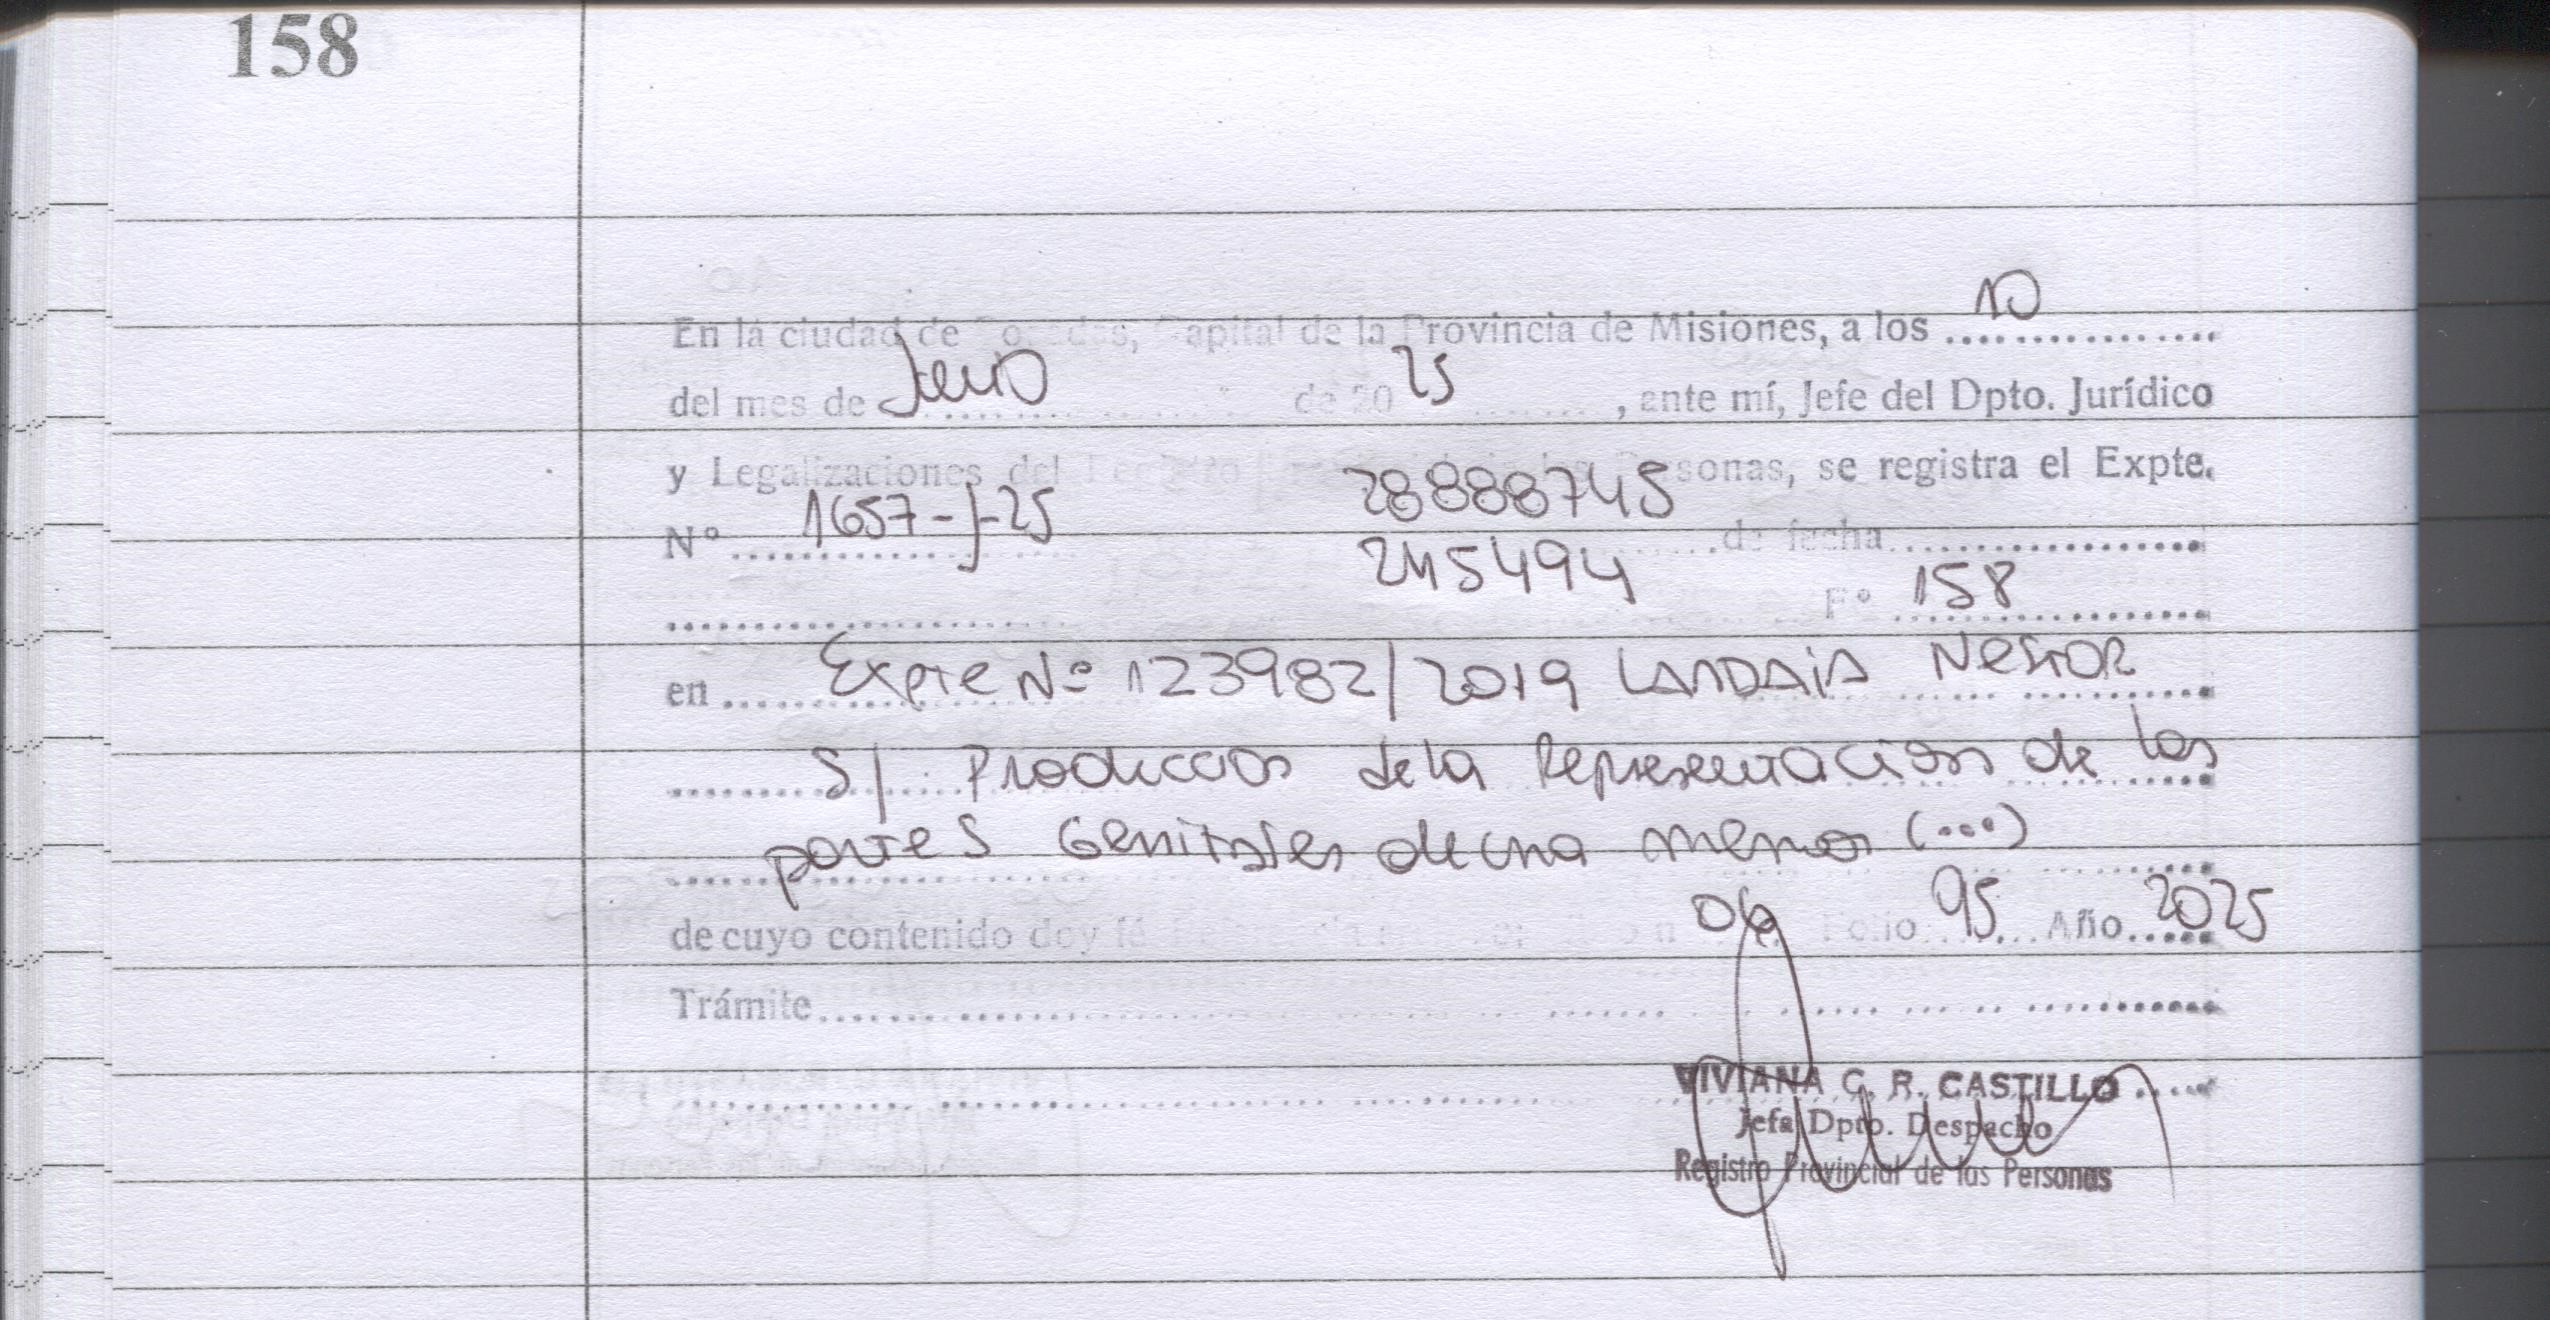 158
En la ciudad de Posadas, Capital de la Provincia de Misiones, a los 10
del mes de Junio de 2025, ante mí, Jefe del Dpto. Jurídico
y Legalizaciones del Registro Provincial de las Personas, se registra el Expte.
28888745
N° 1657-J-25 de fecha
2115494
F° 158
en Expte Nº 123982/2019 LANDAIA Nestor
S/ Produccion de la Representacion de las
partes Genitales de una menor (...)
de cuyo contenido doy fé 06 Folio 95 Año 2025
Trámite
VIVIANA G. R. CASTILLO
Jefa Dpto. Despacho
Registro Provincial de las Personas